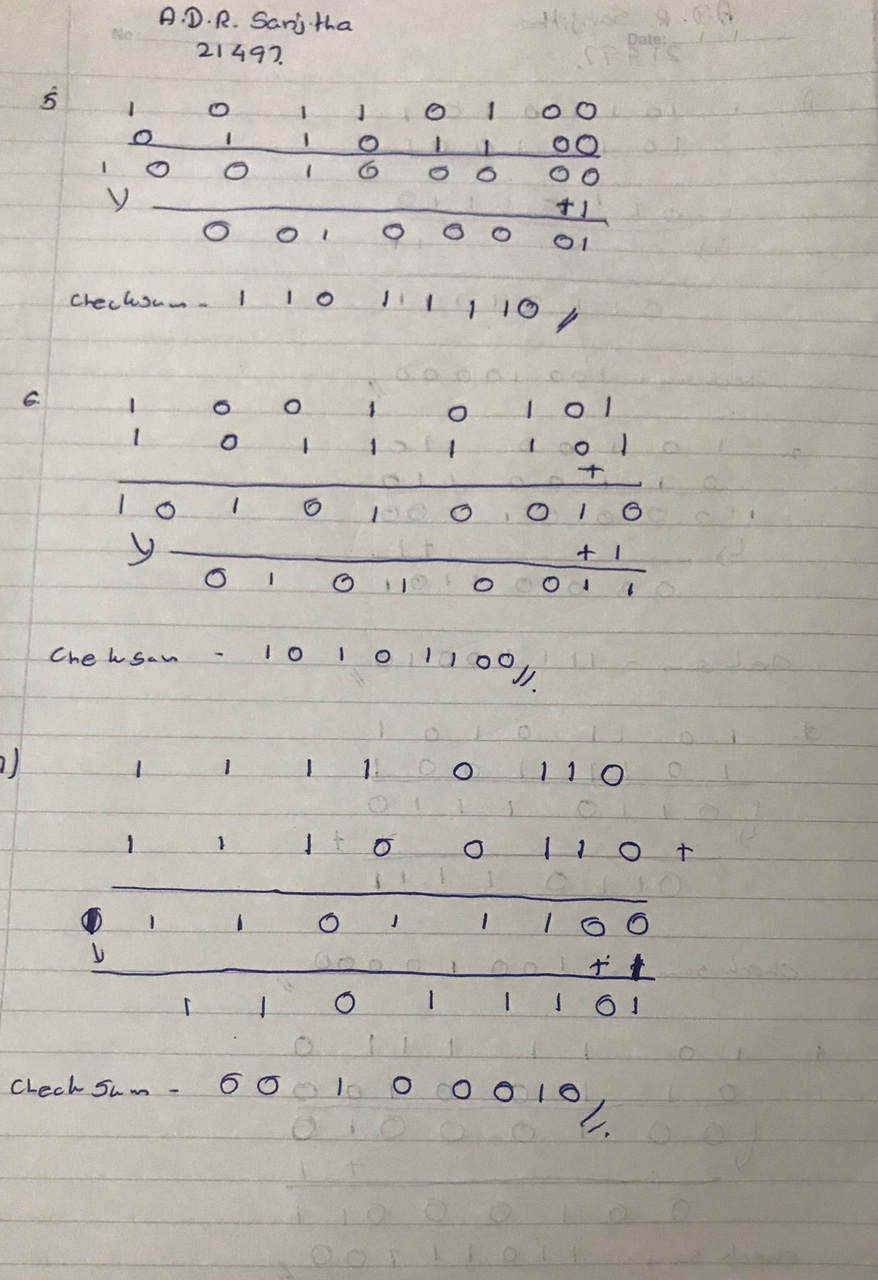 A.D.R. Sanjitha
No
Date:
21497
5 1 0 1 1 0 1 0 0
0 1 1 0 1 1 0 0
1 0 0 1 0 0 0 0 0
+1
0 0 1 0 0 0 0 1
Checksum - 1 1 0 1 1 1 1 0
6. 1 0 0 1 0 1 0 1
1 0 1 1 1 1 0 1
+
1 0 1 0 1 0 0 1 0
+ 1
0 1 0 1 1 0 0 1 1
Cheksan - 1 0 1 0 1 1 0 0
7) 1 1 1 1 0 1 1 0
1 1 1 0 0 1 1 0 +
1 1 0 1 1 1 0 0
+ 1
1 1 0 1 1 1 0 1
Check Sum - 0 0 1 0 0 0 1 0